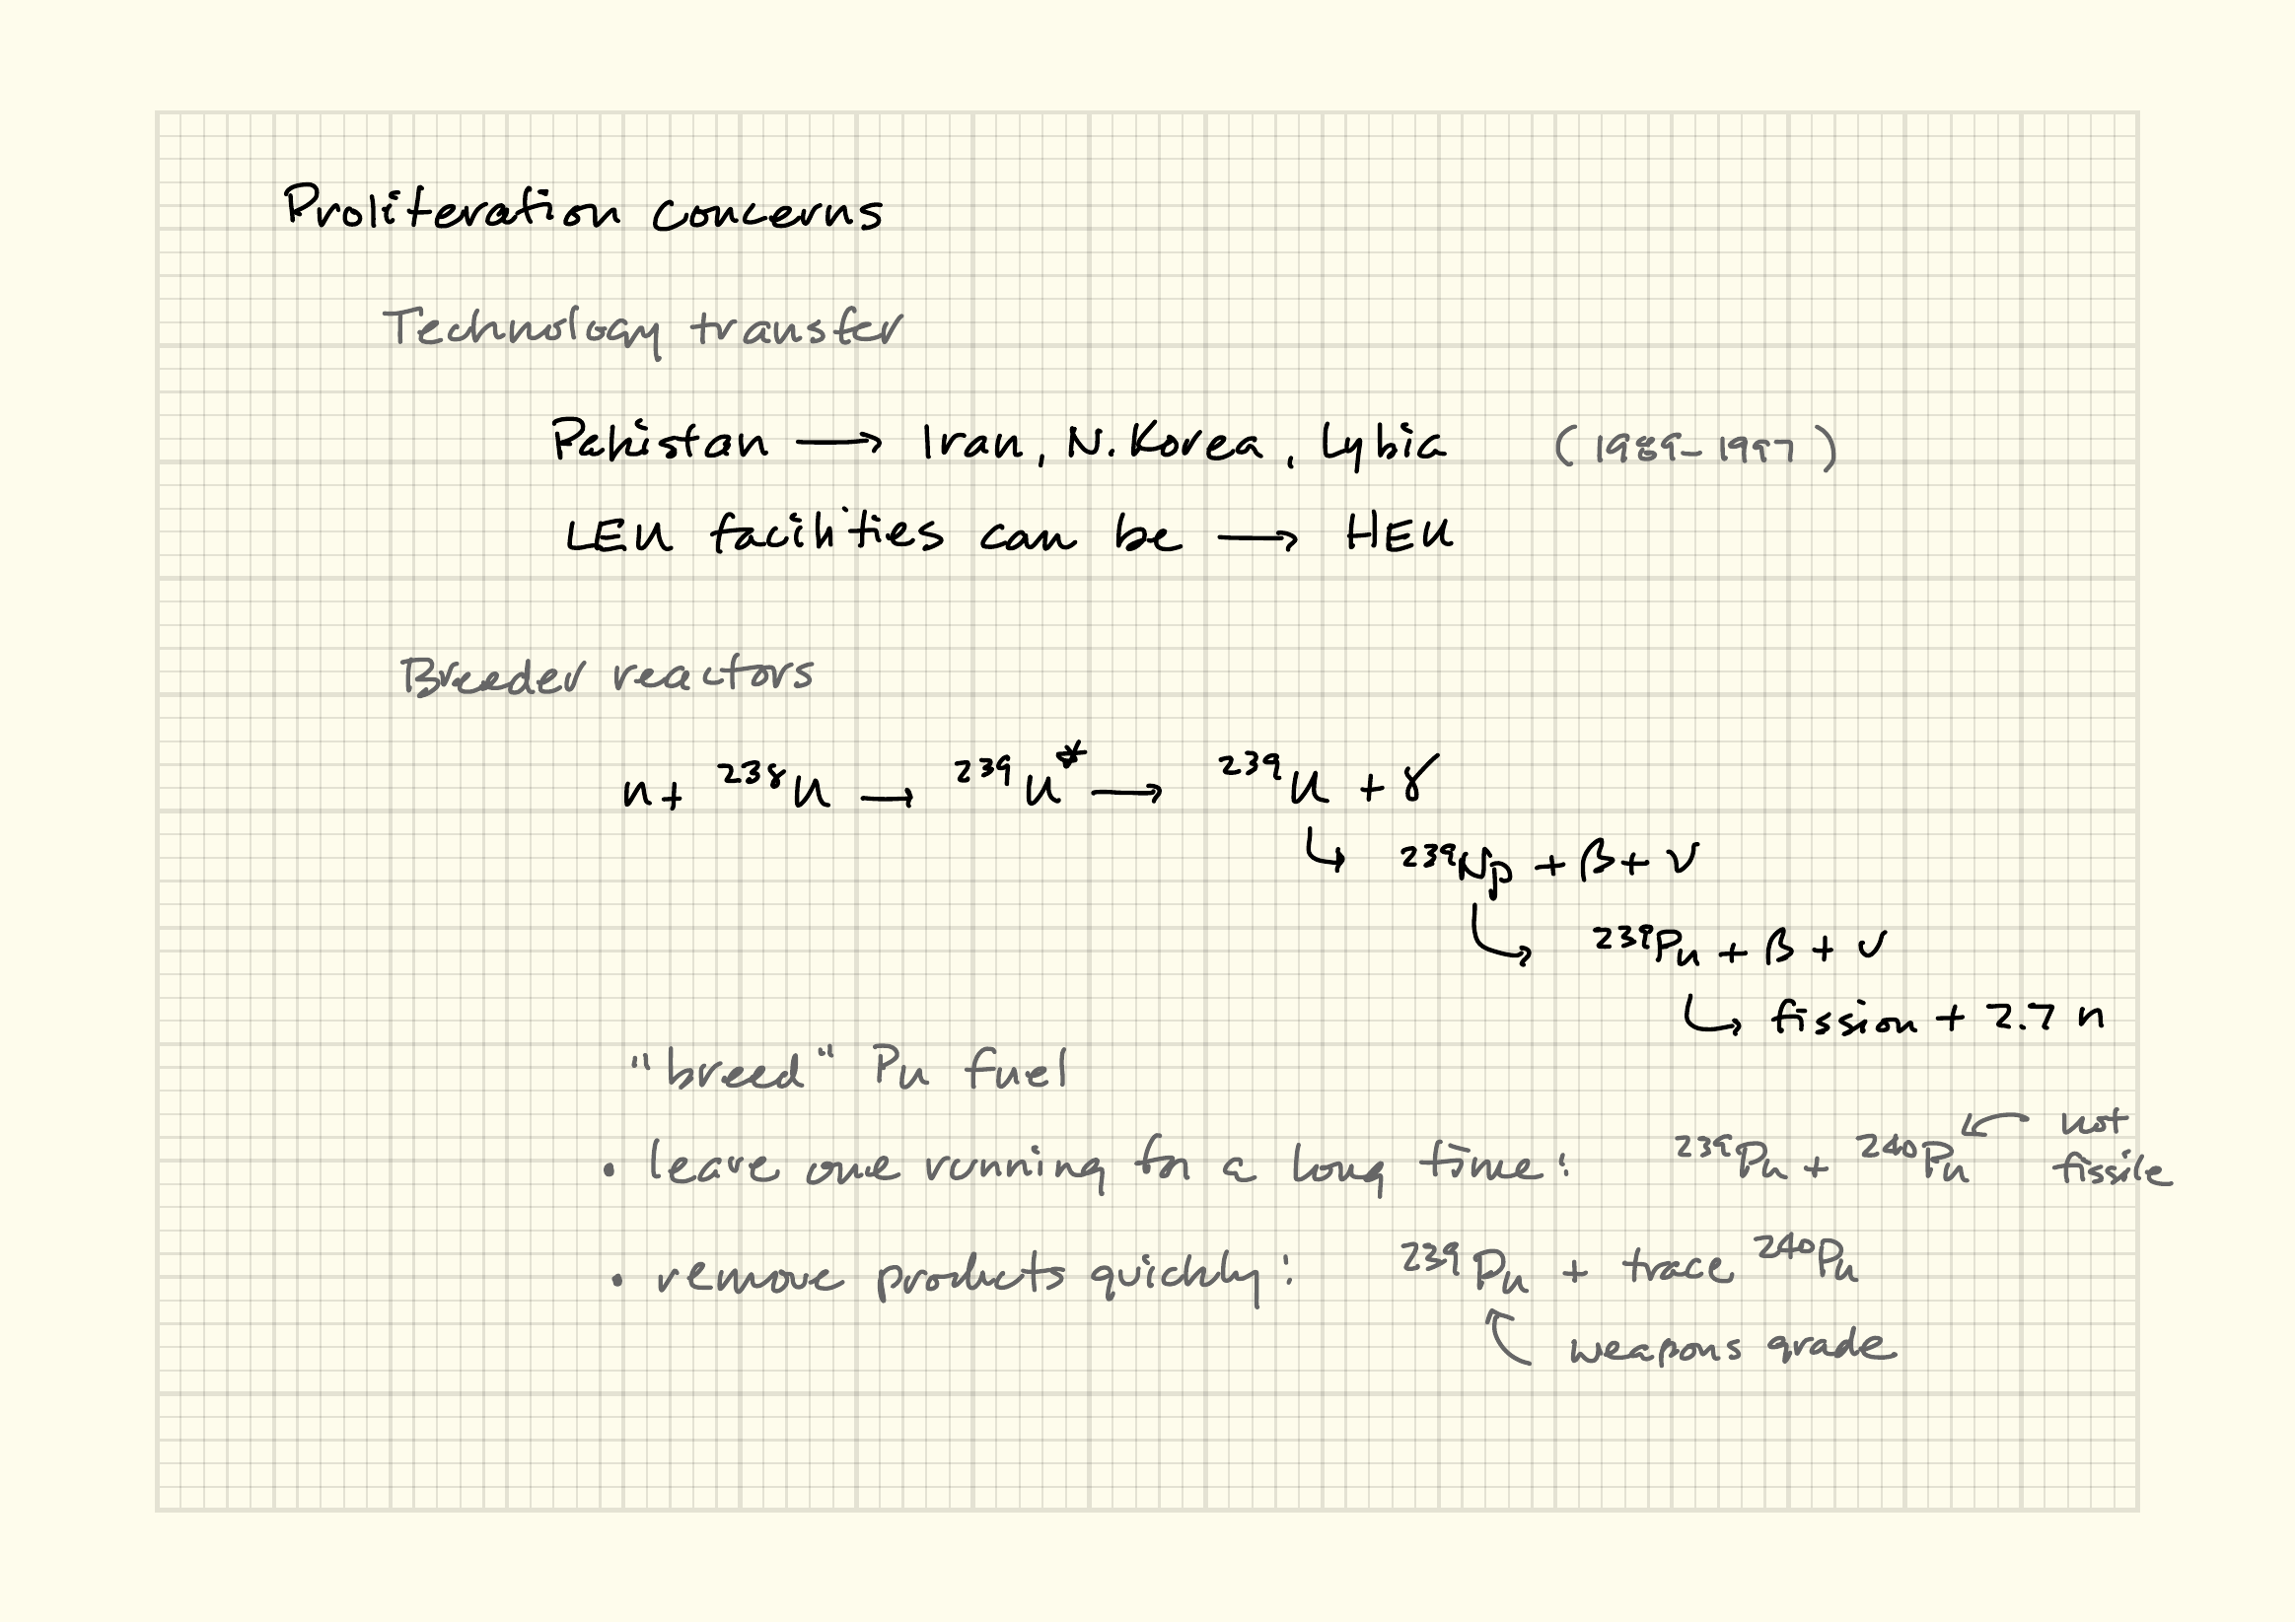 Proliferation Concerns
Technology transfer
Pakistan → Iran, N. Korea, Lybia (1989-1997)
LEU facilities can be → HEU
Breeder reactors
n + ²³⁸U → ²³⁹U* → ²³⁹U + γ
↳ ²³⁹Np + β + ν
↳ ²³⁹Pu + β + ν
↳ fission + 2.7 n
"breed" Pu fuel
• leave one running for a long time: ²³⁹Pu + ²⁴⁰Pu ← not fissile
• remove products quickly: ²³⁹Pu + trace ²⁴⁰Pu
weapons grade